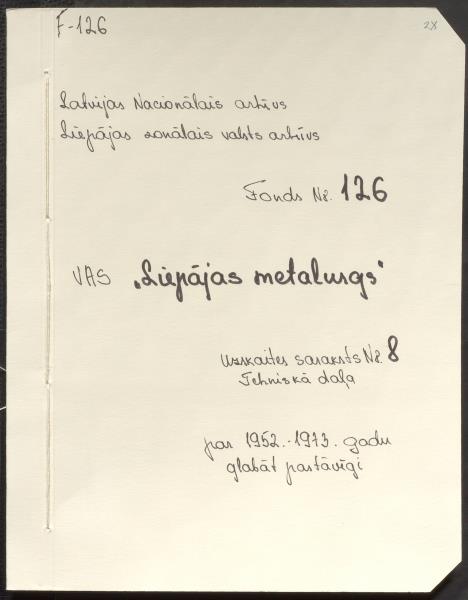 F-126
28
Latvijas Nacionālais arhīvs
Liepājas zonālais valsts arhīvs
Fonds Nr. 126
VAS „Liepājas metalurgs"
Uzskaites saraksts Nr. 8
Tehniskā daļa
par 1952.-1973. gadu
glabāt pastāvīgi